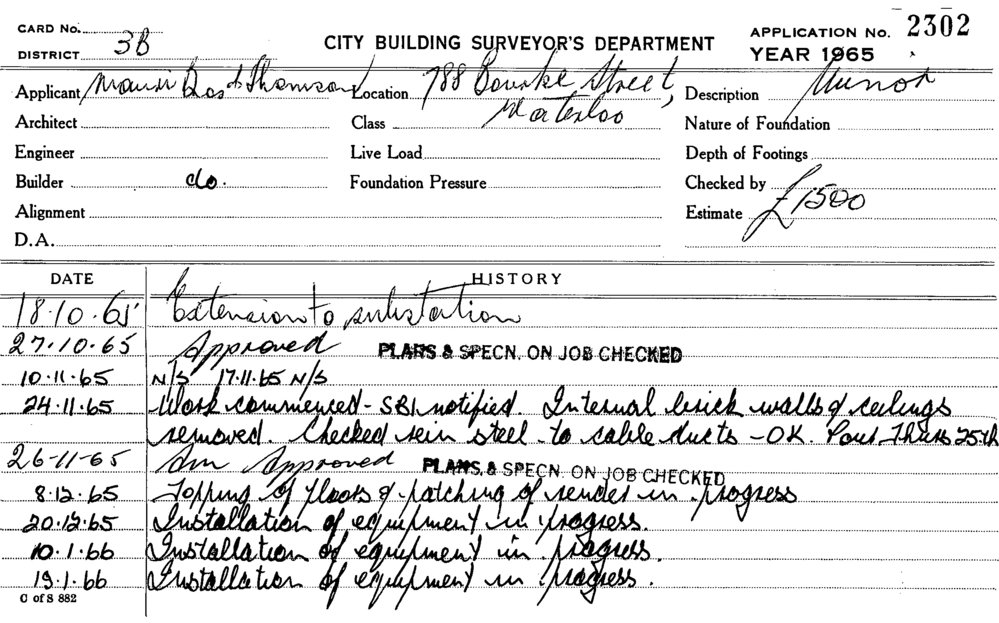 CARD No.
DISTRICT 3B
CITY BUILDING SURVEYOR'S DEPARTMENT
APPLICATION No. 2302
YEAR 1965
Applicant Mauri Bros & Thomson Location 788 Bourke Street, Description Minor
Waterloo
Architect Class Nature of Foundation
Engineer Live Load Depth of Footings
Builder do. Foundation Pressure Checked by
Alignment Estimate £1500
D.A.
DATE HISTORY
18.10.65 Extension to substation
27.10.65 Approved PLANS & SPECN. ON JOB CHECKED
10.11.65 N/S 17.11.65 N/S
24.11.65 Work commenced - SBI notified. Internal brick walls & ceilings
removed. Checked rein steel to cable ducts - OK. Pour Thurs 25th
26-11-65 Am Approved PLANS & SPECN. ON JOB CHECKED
8.12.65 Topping of floors & patching of render in progress
20.12.65 Installation of equipment in progress.
10.1.66 Installation of equipment in progress.
19.1.66 Installation of equipment in progress.
C of S 882